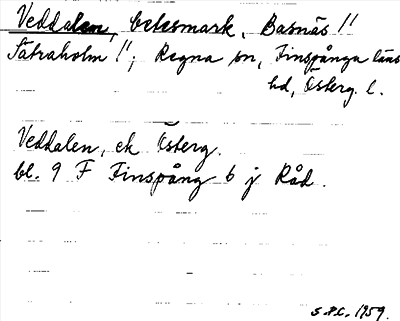 Veddalen, betesmark, Basnäs !!
Sätraholm !!; Regna sn, Finspånga läns
hd, Österg. l.
Veddalen, ek Österg.
bl. 9 F Finspång 6 j Råd.
S.P.L. 1959.